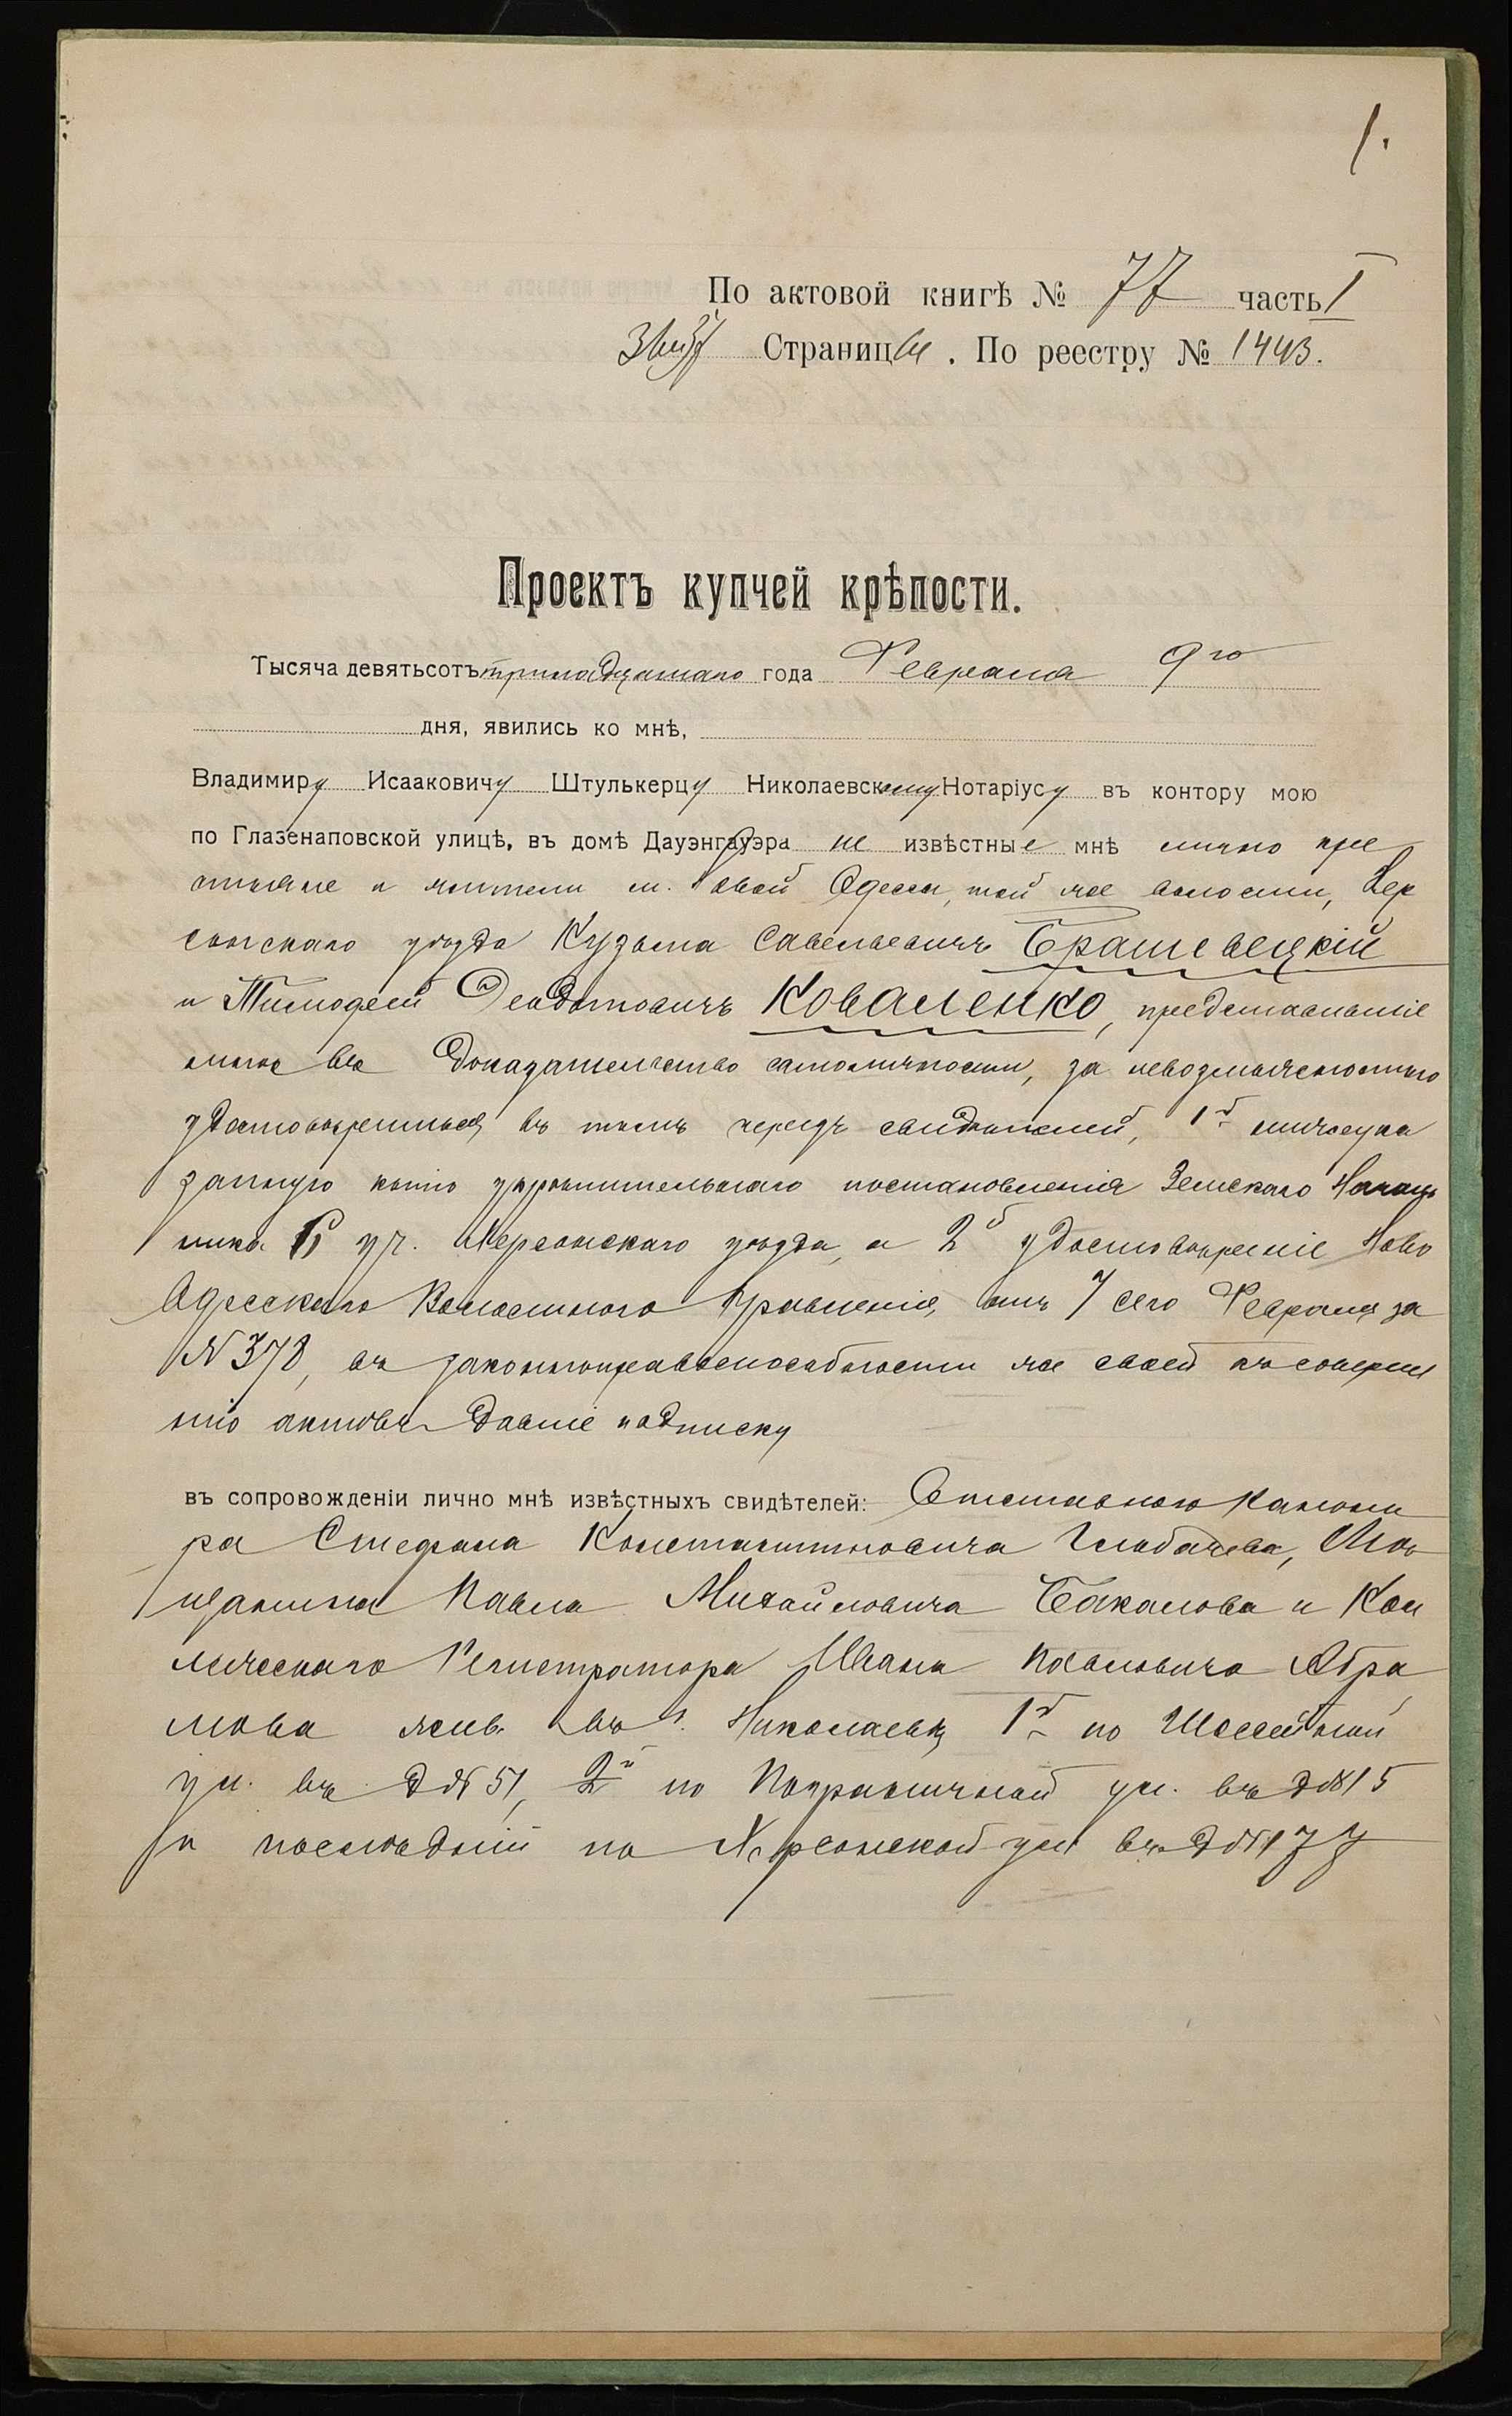 1.
По актовой книгѣ № 77 часть I
Страницы. По реестру № 1443.
Проектъ купчей крѣпости.
Тысяча девятьсотъ тринадцатаго года Февраля 9го
дня, явились ко мнѣ,
Владимиру Исааковичу Штулькерцу Николаевскому Нотаріусу въ контору мою
по Глазенаповской улицѣ, въ домѣ Дауэнгауэра не извѣстные мнѣ лично кре
стьяне и жители м. Новой Одессы, той же волости, Хер
сонскаго уѣзда Кузьма Савельевичъ Брашевецкій
и Тимофей Феодотовичъ Коваленко, представившіе
мнѣ въ доказательство самоличности, за невозможностью
удостовѣриться въ томъ чрезъ свидѣтелей, 1й нижеука
занную копію укрѣпительнаго постановленія Земскаго Началь
ника уч. Херсонскаго уѣзда, а 2й удостовѣреніе Ново
Одесскаго Волостного Правленія, отъ 7 сего Февраля за
№ 378, въ законоправоспособности же своей къ соверше
нію актовъ давшіе подписку
въ сопровожденіи лично мнѣ извѣстныхъ свидѣтелей: Отставного канони
ра Стефана Константиновича Глобачева, Мѣ
щанина Павла Михайловича Бакалова и Кол
лежскаго Регистратора Ивана Павловича Абра
мова жив. въ г. Николаевѣ, 1й по Шоссейной
ул. въ д № 51, 2й по Пограничной ул. въ д № 15
и послѣдній по Херсонской ул въ д № 177